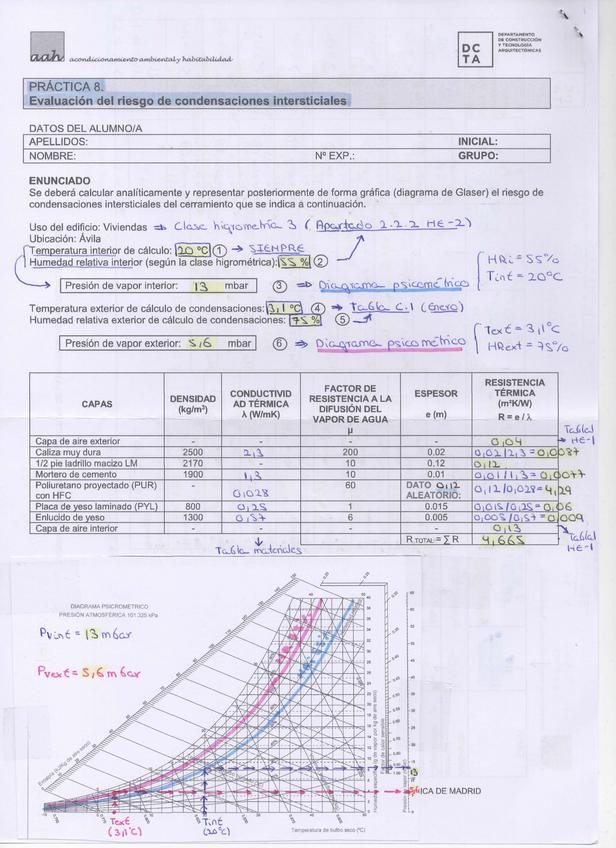 aah acondicionamiento ambiental y habitabilidad
DC
TA
DEPARTAMENTO
DE CONSTRUCCIÓN
Y TECNOLOGÍA
ARQUITECTÓNICAS
PRÁCTICA 8.
Evaluación del riesgo de condensaciones intersticiales
DATOS DEL ALUMNO/A
APELLIDOS: INICIAL:
NOMBRE: Nº EXP.: GRUPO:
ENUNCIADO
Se deberá calcular analíticamente y representar posteriormente de forma gráfica (diagrama de Glaser) el riesgo de
condensaciones intersticiales del cerramiento que se indica a continuación.
Uso del edificio: Viviendas ⇒ Clase higrometría 3 (Apartado 2.2.2 HE-2)
Ubicación: Ávila
Temperatura interior de cálculo: 20 ºC ① → SIEMPRE
Humedad relativa interior (según la clase higrométrica): 55 % ②
HRi = 55%
Tint = 20ºC
Presión de vapor interior: 13 mbar ③ ⇒ Diagrama psicométrico
Temperatura exterior de cálculo de condensaciones: 3,1 ºC ④ → Tabla C.1 (Enero)
Humedad relativa exterior de cálculo de condensaciones: 75 % ⑤
Text = 3,1ºC
HRext = 75%
Presión de vapor exterior: 5,6 mbar ⑥ ⇒ Diagrama psicométrico
CAPAS DENSIDAD (kg/m³) CONDUCTIVIDAD TÉRMICA λ (W/mK) FACTOR DE RESISTENCIA A LA DIFUSIÓN DEL VAPOR DE AGUA μ ESPESOR e (m) RESISTENCIA TÉRMICA (m²K/W) R = e / λ
Capa de aire exterior - - - - 0,04 → Tabla HE-1
Caliza muy dura 2500 2,3 200 0.02 0,02/2,3 = 0,0087
1/2 pie ladrillo macizo LM 2170 - 10 0.12 0,12
Mortero de cemento 1900 1,3 10 0.01 0,01/1,3 = 0,0077
Poliuretano proyectado (PUR) con HFC 0,028 60 DATO ALEATORIO: 0,12 0,12/0,028 = 4,29
Placa de yeso laminado (PYL) 800 0,25 1 0.015 0,015/0,25 = 0,06
Enlucido de yeso 1300 0,57 6 0.005 0,005/0,57 = 0,009
Capa de aire interior - - - - 0,13 → Tabla HE-1
R.TOTAL = ∑R 4,665
Tabla materiales
DIAGRAMA PSICROMÉTRICO
PRESIÓN ATMOSFÉRICA 101.325 kPa
Pvint = 13 mbar
Pvext = 5,6 mbar
Text
(3,1ºC)
Tint
(20ºC)
Temperatura de bulbo seco (ºC)
ICA DE MADRID